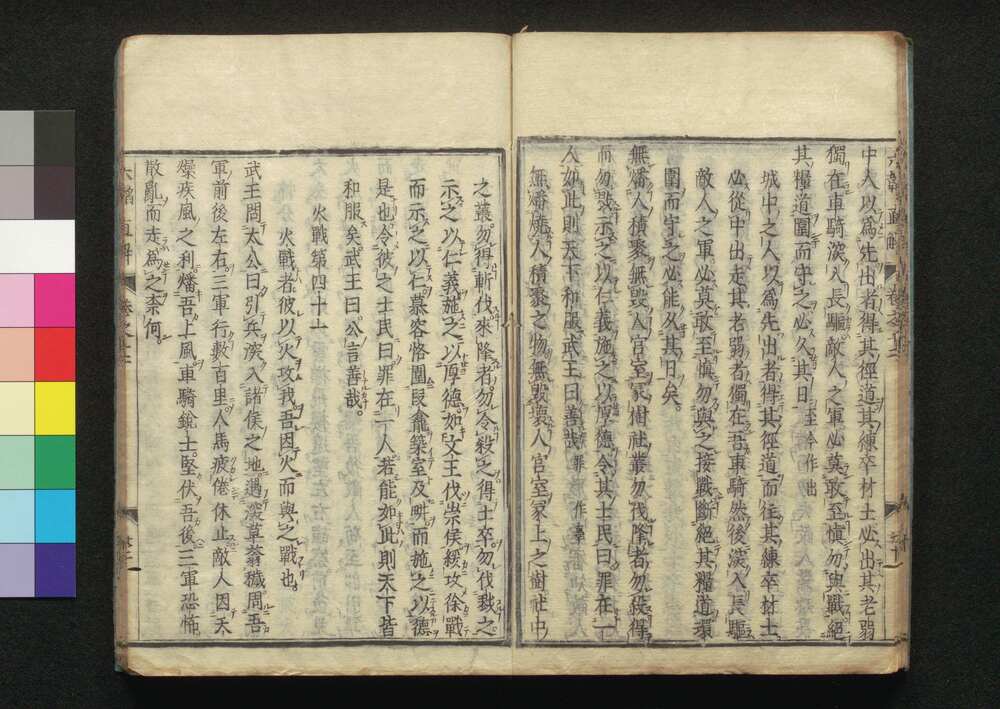 中人以爲先出者得其徑道其練卒材士必出其老弱
獨在車騎深入長驅敵人之軍必莫敢至愼勿與戰絕
其糧道圍而守之必久其日
城中之人以爲先出者得其徑道而往其練卒材士
必從中出走其老弱者獨在吾車騎然後深入長驅
敵人之軍必莫敢至愼勿與之接戰斷絕其糧道環
圍而守之必能久其日矣。
無燔人積聚無毀人宮室冢樹社叢勿伐降者勿殺得
而勿戮示之以仁義施之以厚德令其士民曰罪在一
人如此則天下和服武王曰善哉
無燔燒人積聚之物無毀壞人宮室冢上之樹社中
之叢。勿得斬伐來降者。勿令殺之得士卒。勿伐戮之
示之以仁義施之以厚德。如文王伐崇侯緩攻徐戰
而示之以仁慕容恪圍段龕築室及畊而施之以德
是也令彼之士民曰罪在一人若能如此則天下皆
和服矣武王曰公言善哉。
火戰第四十一
火戰者彼以火攻我吾因火而與之戰也。
武王問太公曰引兵深入諸侯之地。遇深草蓊穢周吾
軍前後左右。三軍行數百里。人馬疲倦休止敵人因天
燥疾風之利燔吾上風。車騎銳士。堅伏吾後三軍恐怖
散亂而走爲之柰何。